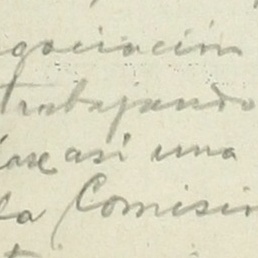 gociación
trabajando
dose así una
la Comisin